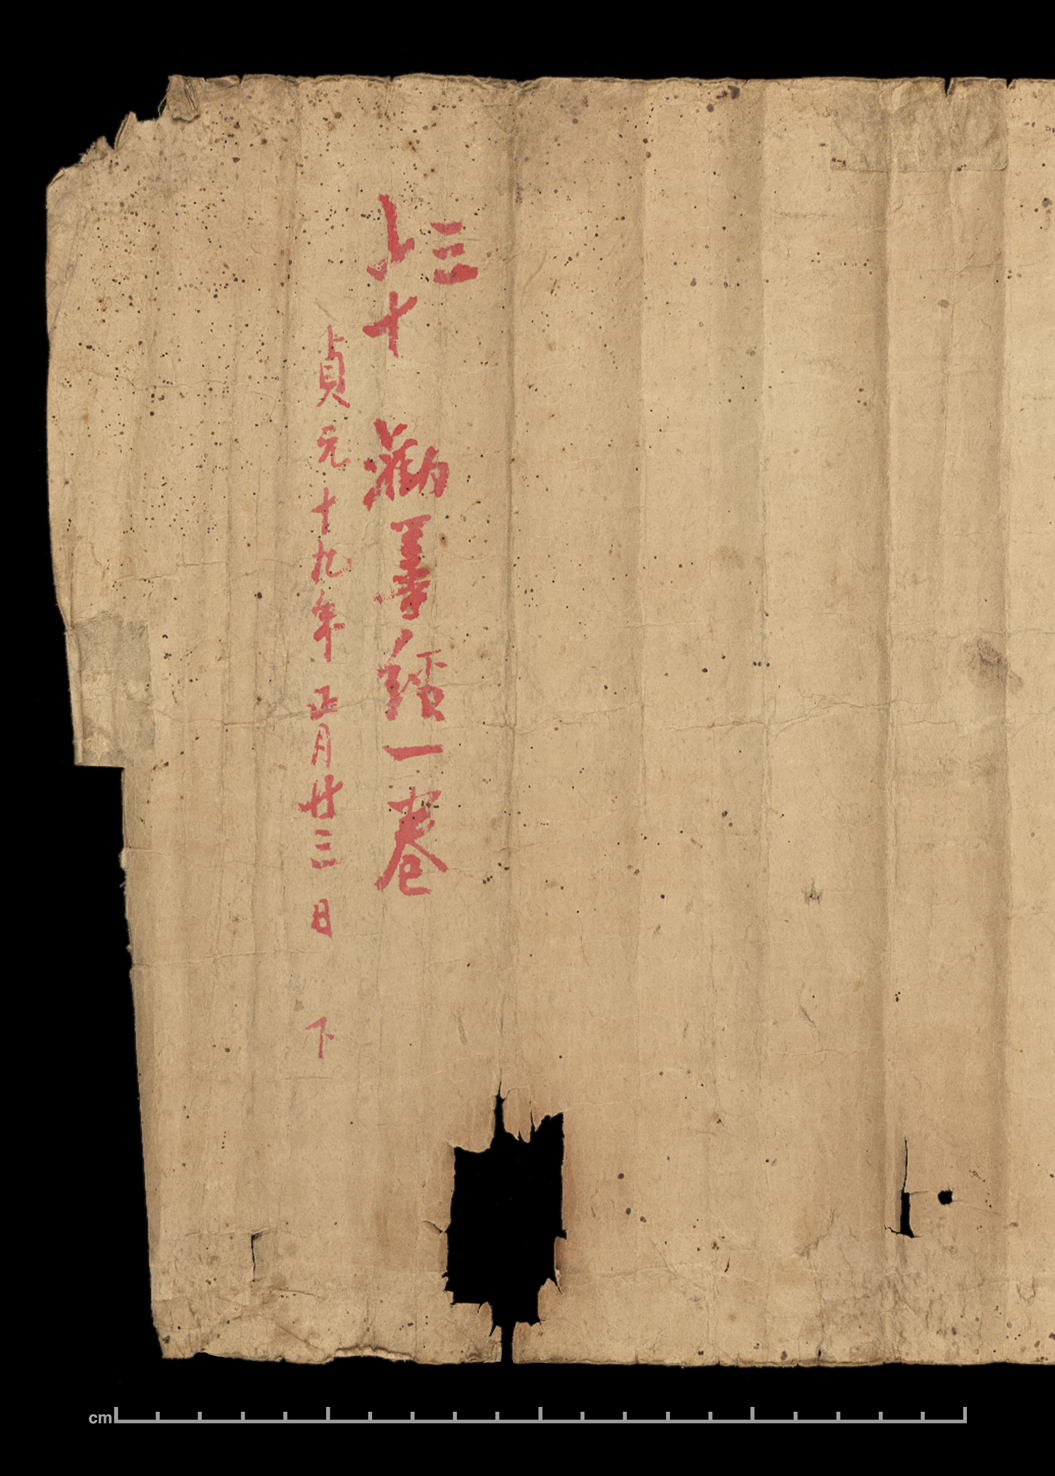 三
上十 勸善經一卷
貞元十九年正月廿三日 下
cm